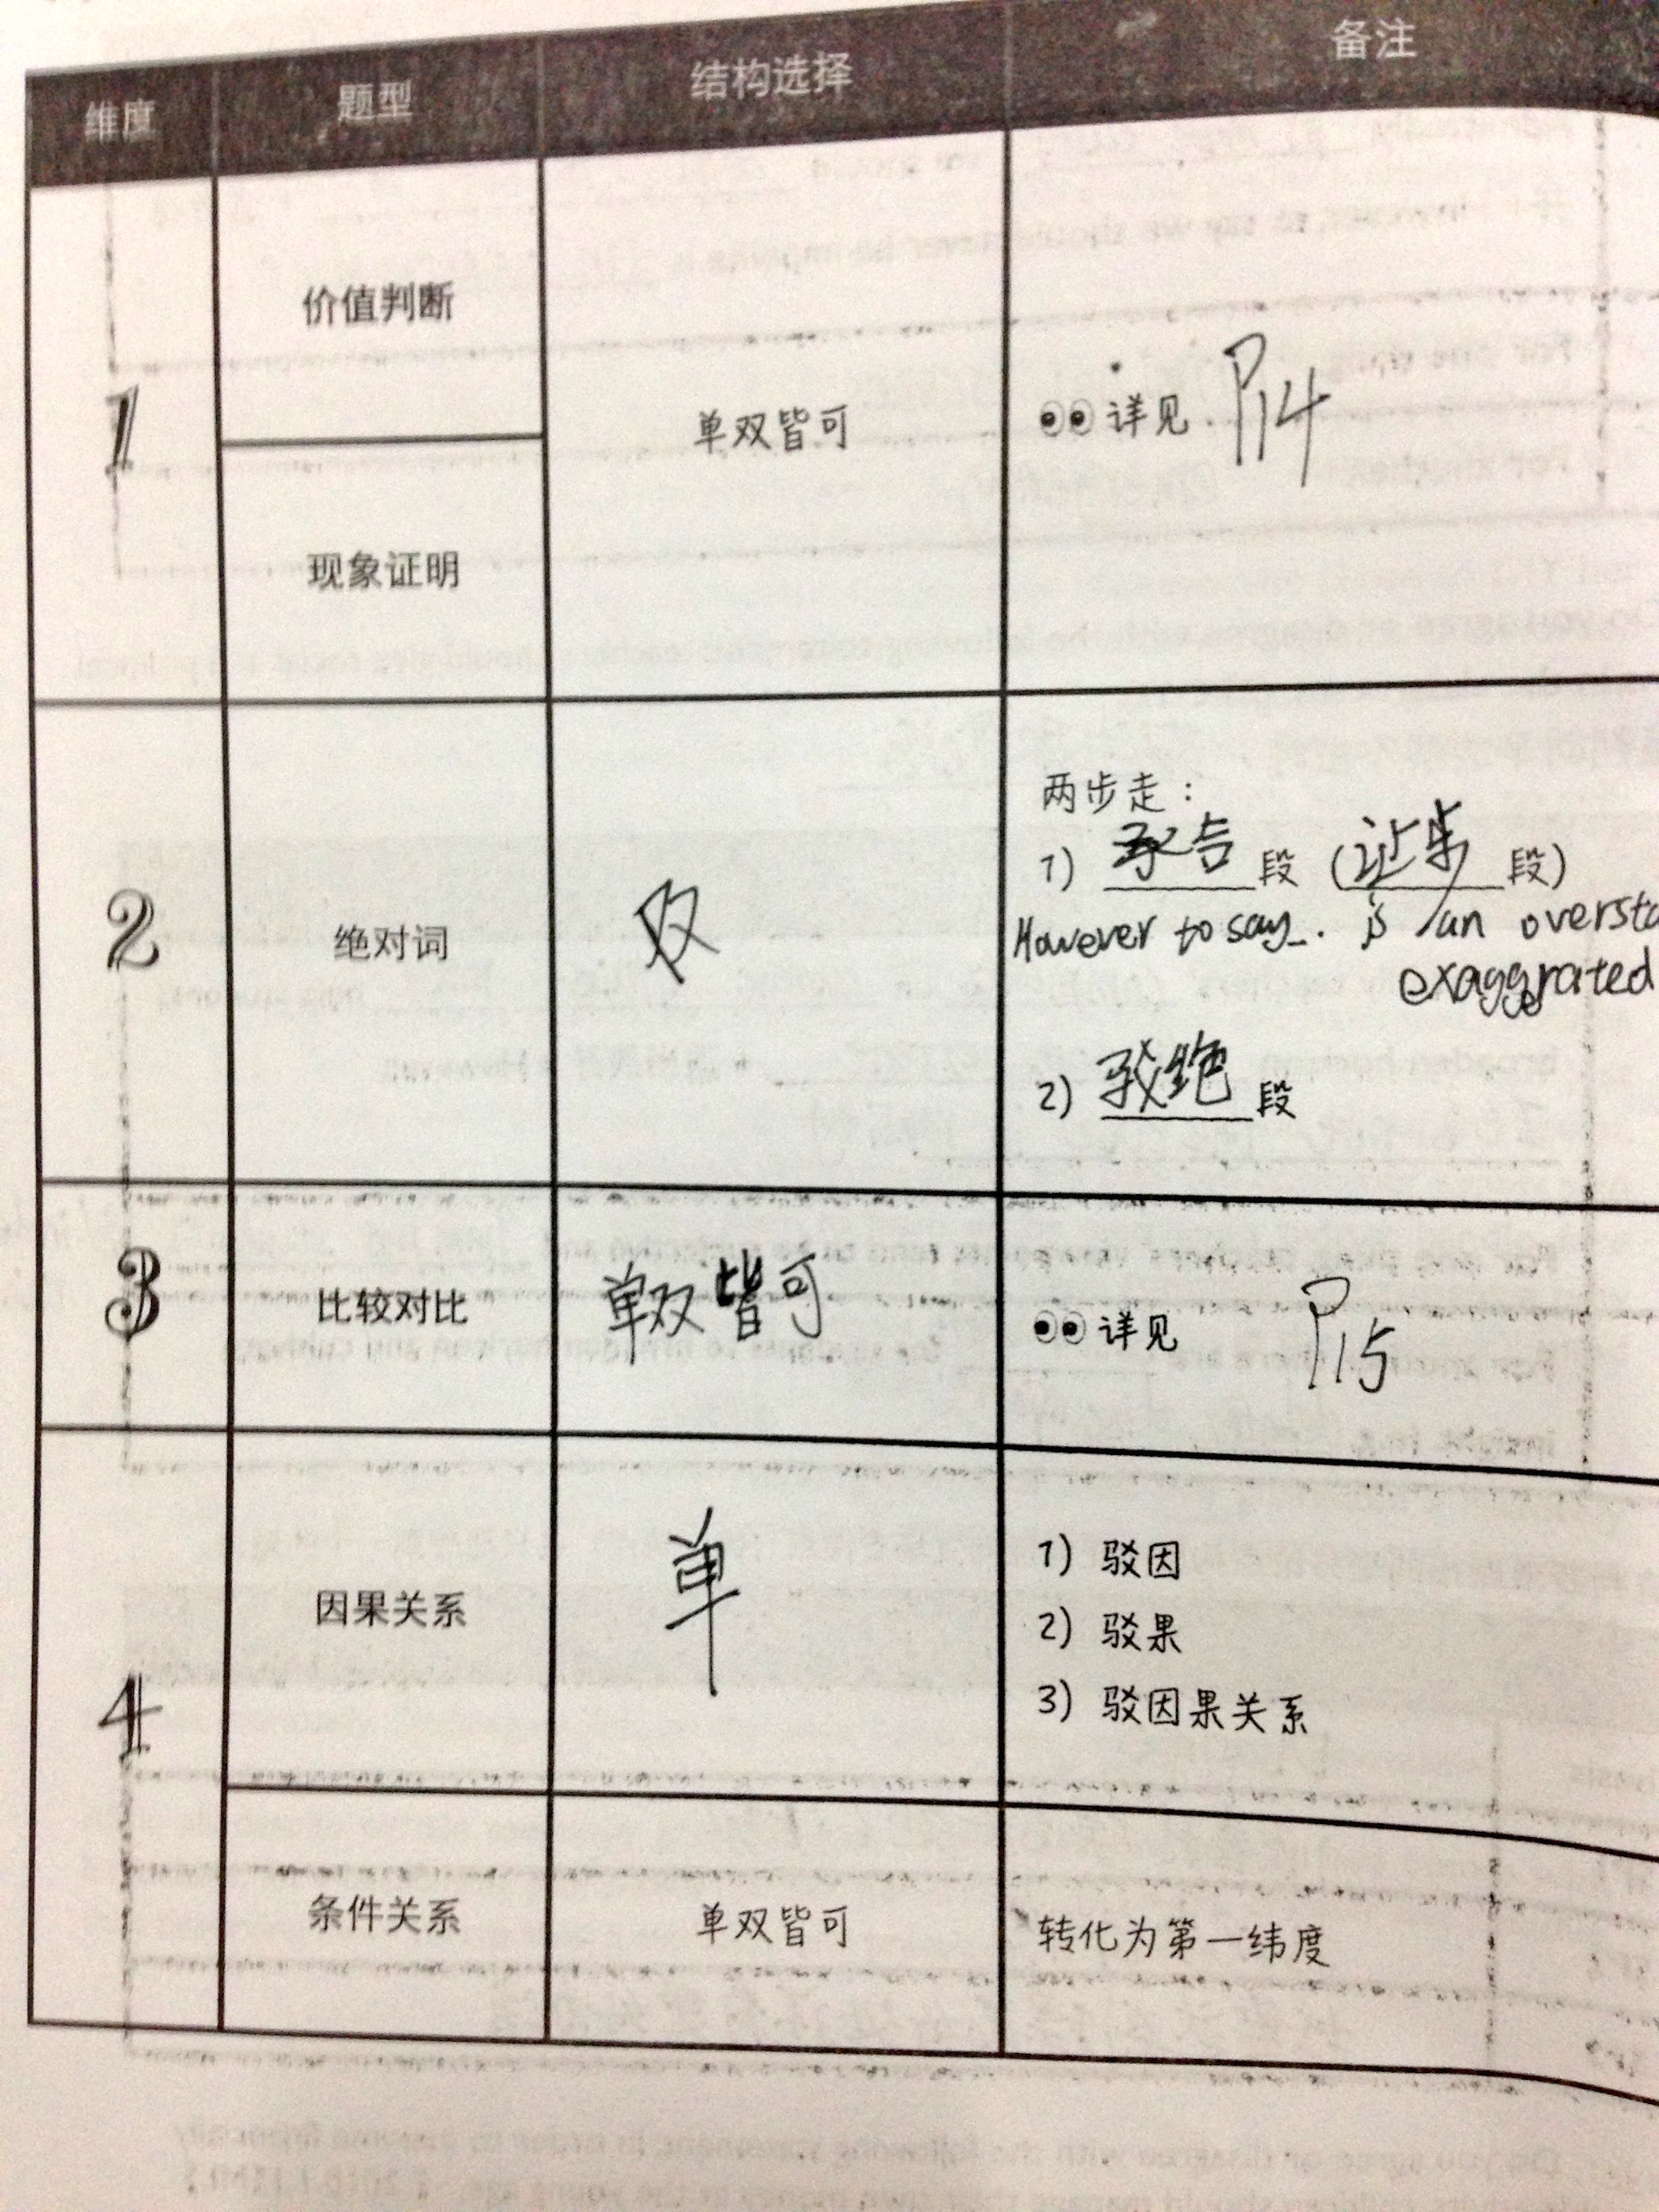 维度 题型 结构选择 备注
1 价值判断 单双皆可 详见 P14
现象证明
2 绝对词 双
两步走:
1) 承合段 (让步段)
However to say_. is an oversta
exaggrated
2) 驳绝段
3 比较对比 单双皆可 详见 P15
4 因果关系 单
1) 驳因
2) 驳果
3) 驳因果关系
条件关系 单双皆可 转化为第一纬度